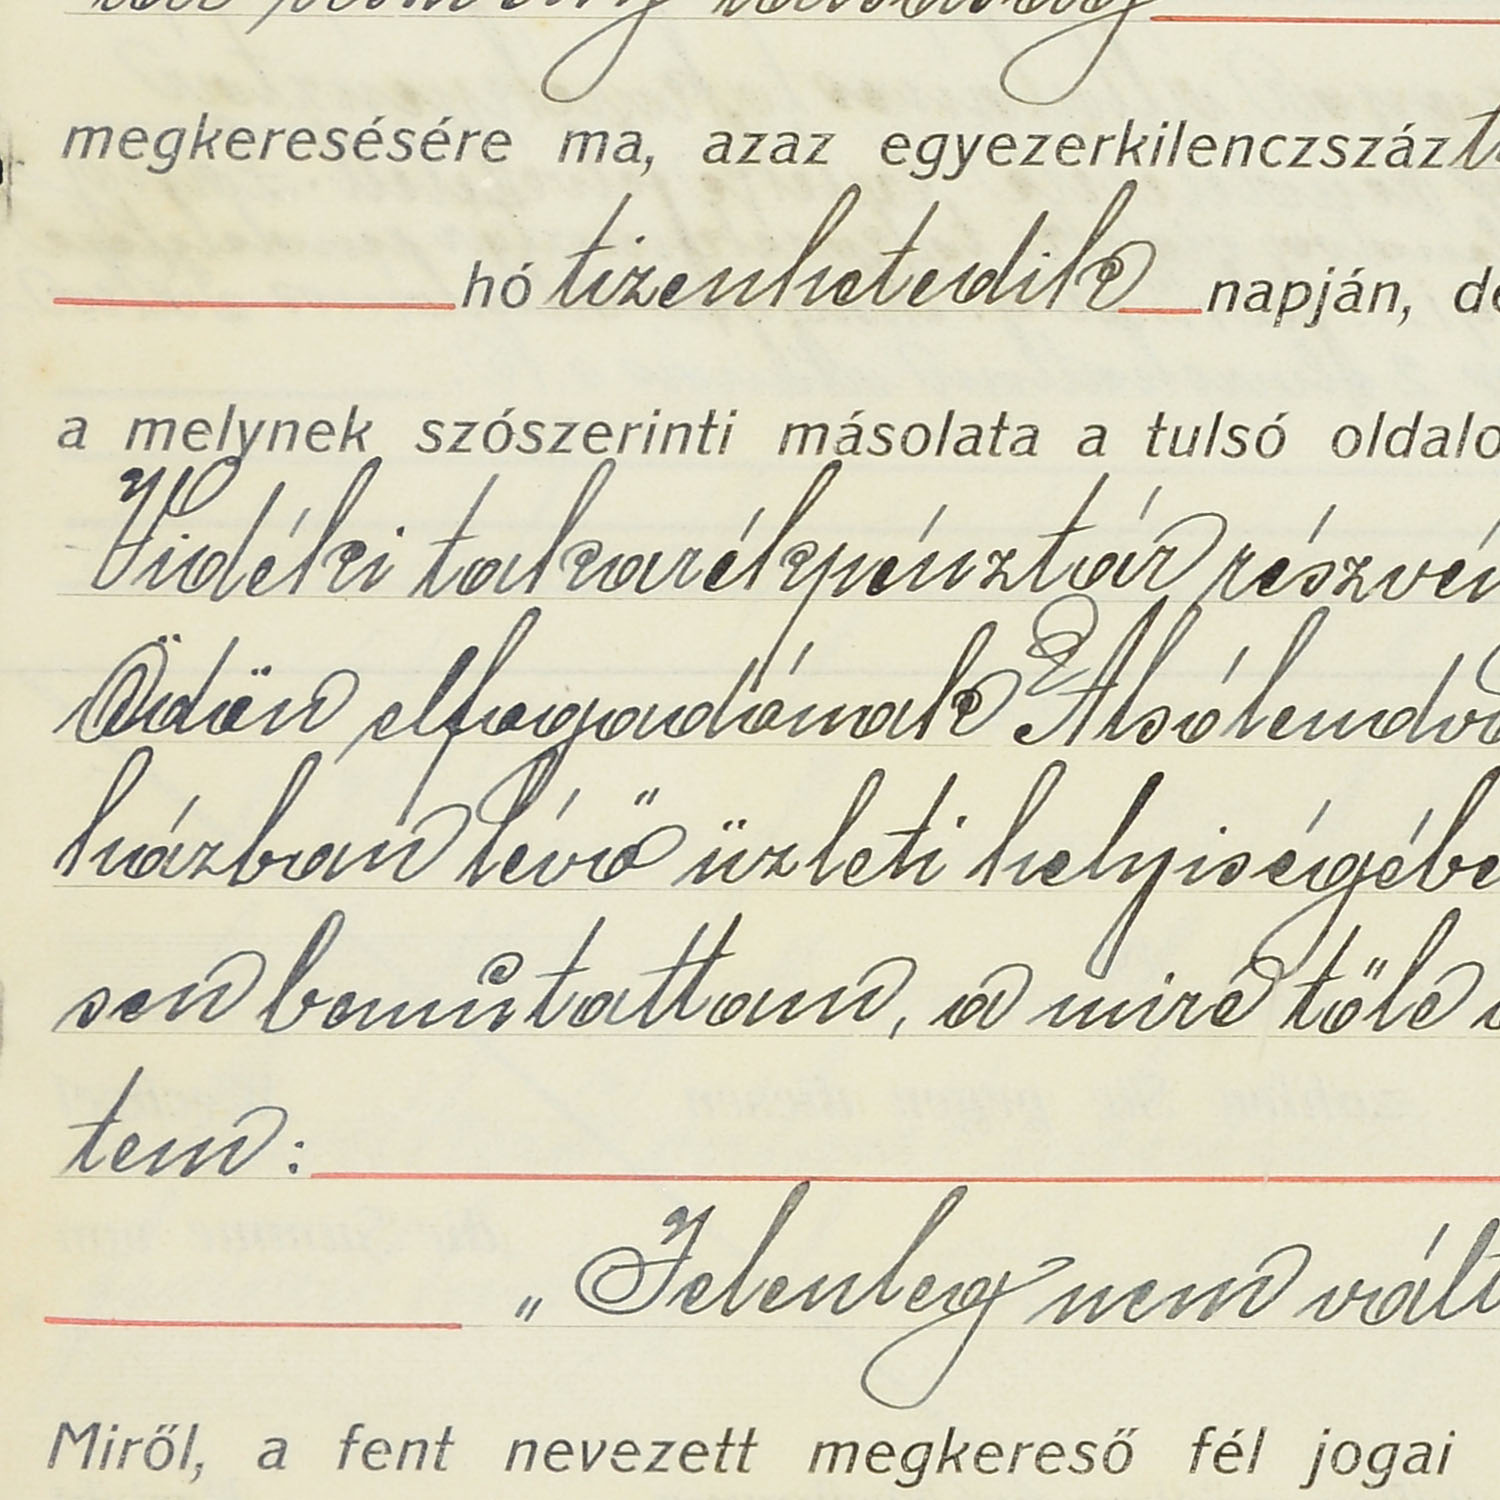 részvény társaság
megkeresésére ma, azaz egyezerkilenczszáz
hó tizenhetedik napján, de
a melynek szószerinti másolata a tulsó oldalo
Vidéki takarékpénztár részvén
Ödön elfogadónak Alsólendva
házban lévő üzleti helyiségébe
sen bemůtattam, a mire tőle
tem:
„Jelenleg nem vált
Miről, a fent nevezett megkereső fél jogai